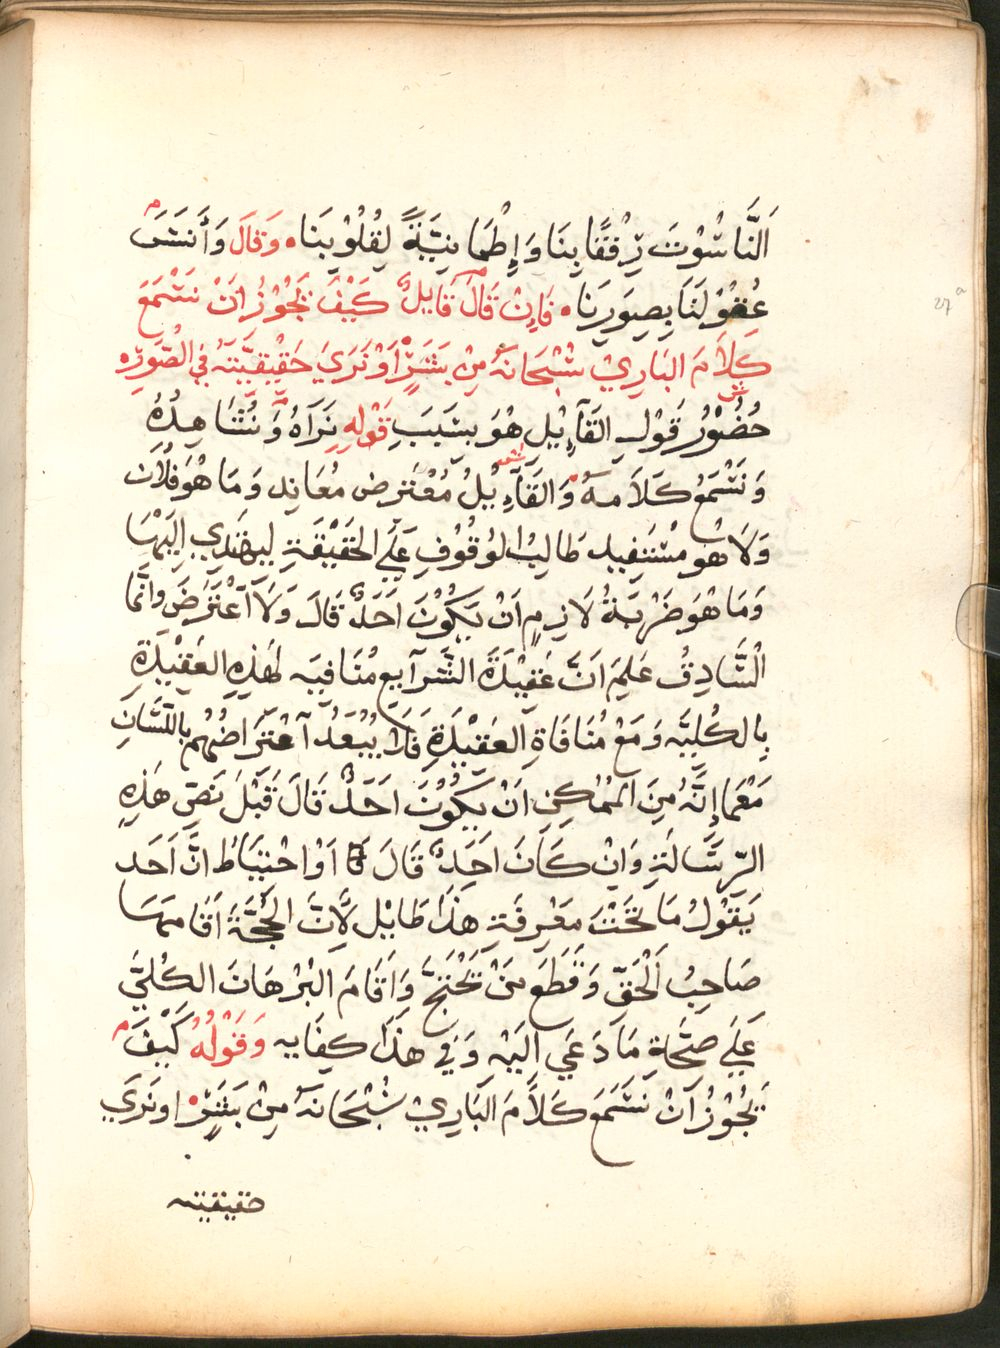 اَلنَّاسُوْتَ رِفْقًا بِنَا وَاِطْمَانِيَّةً لِقُلُوْبِنَا ۰ وَقَالَ وَأَنَسَى م
عُقُوْلَنَا بِصِوَرِنَا ۰ فَاِنْ قَالَ قَايِلٌ كَيْفَ يَجُوْزُ اَنْ نَسْمَعَ
كَلَامَ البَارِيْ سُبْحَانَهُ مِنْ بَشَرٍ اَوْ نَرَيَ حَقِيْقِيَّتَهُ فِي الصُّوَرِ ۰
ش
حُضُوْرُ قَوْلِ القَآئِيْلِ هُوَ بِسَبَبِ قَوْلِهِ نَرَآهُ وَ نُشَاهِدُهُ
وَنَسْمَعُ كَلَامَهُ ۰ وَالقَآئِيْلُ مُعْتَرِض مُعَانِد وَمَا هُوَ فُلَان
وَلَا هُو مسْتَفِيد طَالِبْ الوُقُوْفِ عَلَي الحَقِيْقَةِ لِيَهْتَدِي اِلَيْهَا
وَمَا هُوَ ضَرْبَةُ لَازِمٍ اَنْ يَكُوْنَ اَحَدٌ قَالَ وَلَا آعْتَرَضَ وانَّمَا
الْسَّادِقُ عَلِمَ اَنَّ عَقِيْدَةَ الشَّرَآيِعِ مُنَافِيَه لِهَذِهِ العَقِيْدَةِ
بِالكُلِيَّه وَمَعْ مُنَافَاةِ العَقِيْدَةِ فَلَا يُبْعَدُ آعْتِرَاضُهُمْ بِاللِّسَانِ
مَعْمَا اِنَّهُ مِنَ المُمْكِنِ اَنْ يَكُوْنَ اَحَدٌ قَالَ قَبْلَ نَصِّ هَذِهِ
الرِّسَالَةِ وَاِنْ كَانَ اَحَدٌ قَالَ اَوْ احْتِيَاطُ انَّ اَحَد
يَقُوْلُ مَا تَحْتَ مَعْرِفَةِ هَذَا طَايْل لِاَنَّ الحُجَّةَ اَقَامهَا
صَاحِبُ اَلْحَقِّ وَقَطَعَ مَنْ يَحْتَجَّ وَاَقَامَ البُرْهَانَ الكُلِيَّ
عَلَي صِحَّةِ مَا دَعَي اِلَيْهِ وَفِي هَذَا كِفَايه وَقَوْلُهُ كَيْفَ م
يَجُوْزُ اَنْ نَسْمَعَ كَلَامَ البَارِيْ سُبْحَانَهُ مِنْ بَشَرٍ ۰ اوَنَرَي
حقيقيته